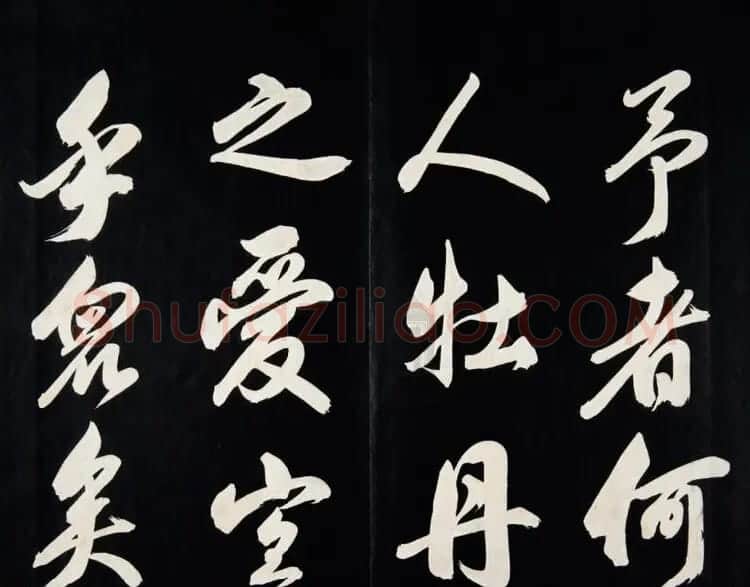 予者何
人牡丹
之愛宜
乎眾矣
Shufaziliao.COM